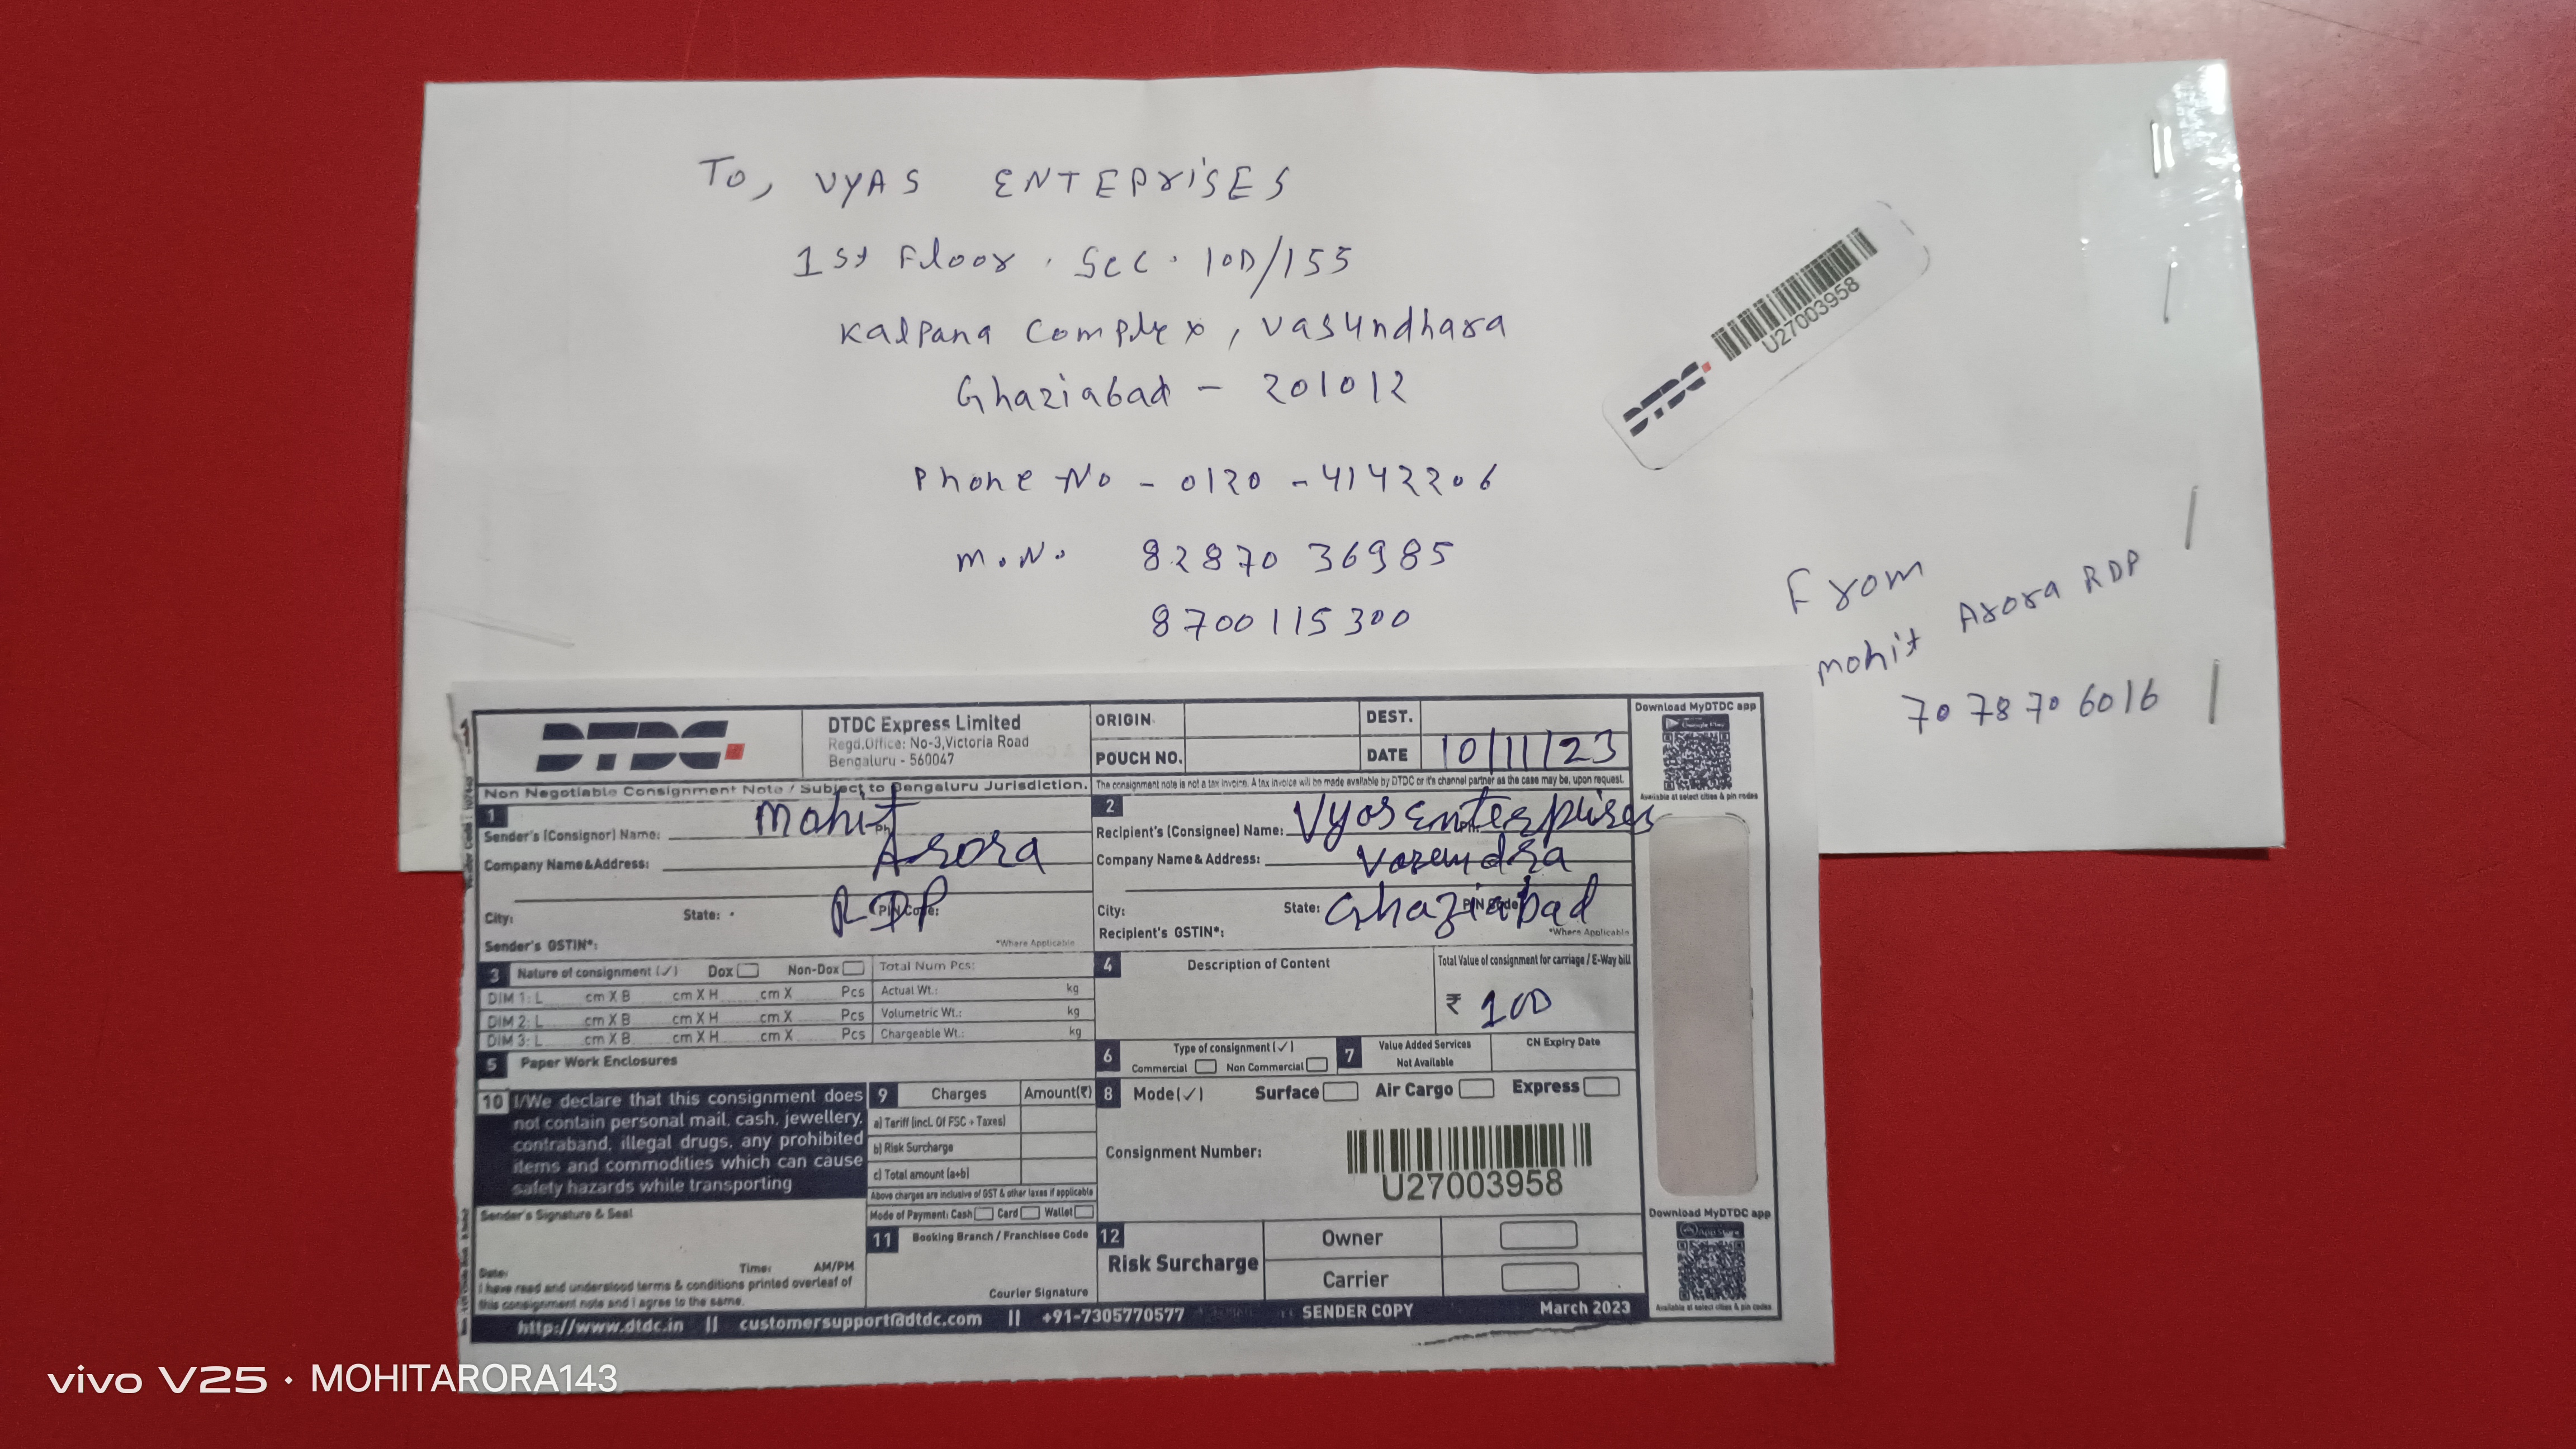 To, VYAS ENTEPrisES
1st Floor . Sec . 10D/155
Kalpana Complex, Vasundhara
Ghaziabad - 201012
Phone No - 0120 - 4142206
M.No. 82870 36985
8700115300
DTDC U27003958
From
Mohit Arora RDP
70 78 70 6016
DTDC
DTDC Express Limited
Regd.Office: No-3,Victoria Road
Bengaluru - 560047
ORIGIN
DEST.
POUCH NO.
DATE 10/11/23
Download MyDTDC app
Available at select cities & pin codes
Non Negotiable Consignment Note / Subject to Bengaluru Jurisdiction.
The consignment note is not a tax invoice. A tax invoice will be made available by DTDC or it's channel partner as the case may be, upon request.
1
Sender's (Consignor) Name: Mohit
Company Name & Address: Arora
City: State: PIN Code: RDP
Sender's GSTIN*: *Where Applicable
2
Recipient's (Consignee) Name: Vyas Enterprises
Company Name & Address:
City: State: PIN Code: Ghaziabad
Recipient's GSTIN*: *Where Applicable
3 Nature of consignment (✓) Dox Non-Dox Total Num Pcs:
DIM 1: L cm X B cm X H cm X Pcs Actual Wt.: kg
DIM 2: L cm X B cm X H cm X Pcs Volumetric Wt.: kg
DIM 3: L cm X B cm X H cm X Pcs Chargeable Wt.: kg
4 Description of Content
Total Value of consignment for carriage / E-Way bill
₹ 100
5 Paper Work Enclosures
6 Type of consignment (✓)
Commercial Non Commercial
7 Value Added Services
Not Available
CN Expiry Date
10 I/We declare that this consignment does
not contain personal mail, cash, jewellery,
contraband, illegal drugs, any prohibited
items and commodities which can cause
safety hazards while transporting
9 Charges Amount(₹)
a) Tariff (incl. Of FSC + Taxes)
b) Risk Surcharge
c) Total amount (a+b)
Above charges are inclusive of GST & other taxes if applicable
Mode of Payment: Cash Card Wallet
8 Mode(✓) Surface Air Cargo Express
Consignment Number:
U27003958
Sender's Signature & Seal
Date: Time: AM/PM
I have read and understood terms & conditions printed overleaf of
this consignment note and I agree to the same.
11 Booking Branch / Franchisee Code
Courier Signature
12
Risk Surcharge
Owner
Carrier
Download MyDTDC app
Available at select cities & pin codes
http://www.dtdc.in || customersupport@dtdc.com || +91-7305770577 SENDER COPY March 2023
vivo V25 · MOHITARORA143